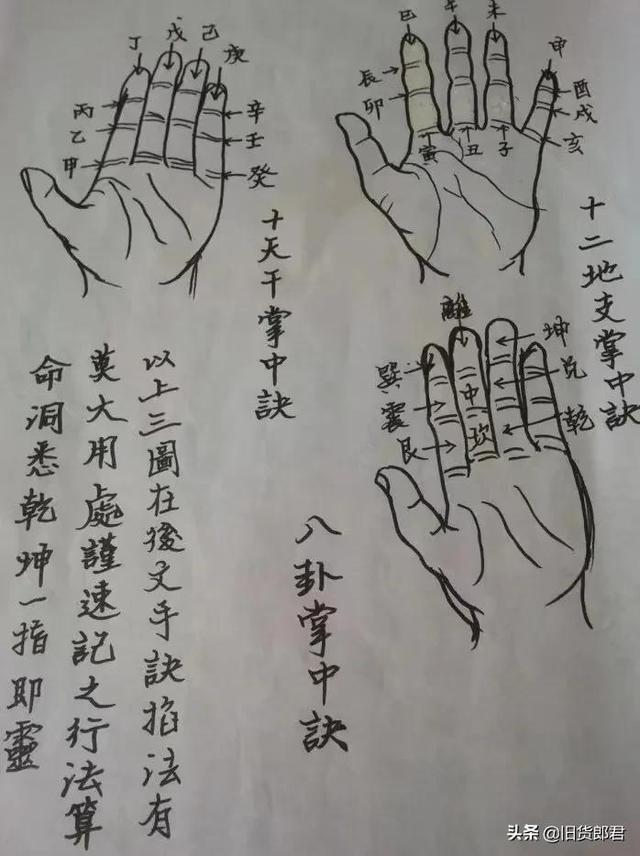 丁
戊
己
庚
丙
乙
甲
辛
壬
癸
十天干掌中訣
巳
午
未
申
辰
卯
寅
丑
子
酉
戌
亥
十二地支掌中訣
離
巽
震
艮
中
坎
坤
兑
乾
八卦掌中訣
以上三圖在後文手訣掐法有
莫大用處謹速記之行法算
命洞悉乾坤一指即靈
头条 @旧货郎君